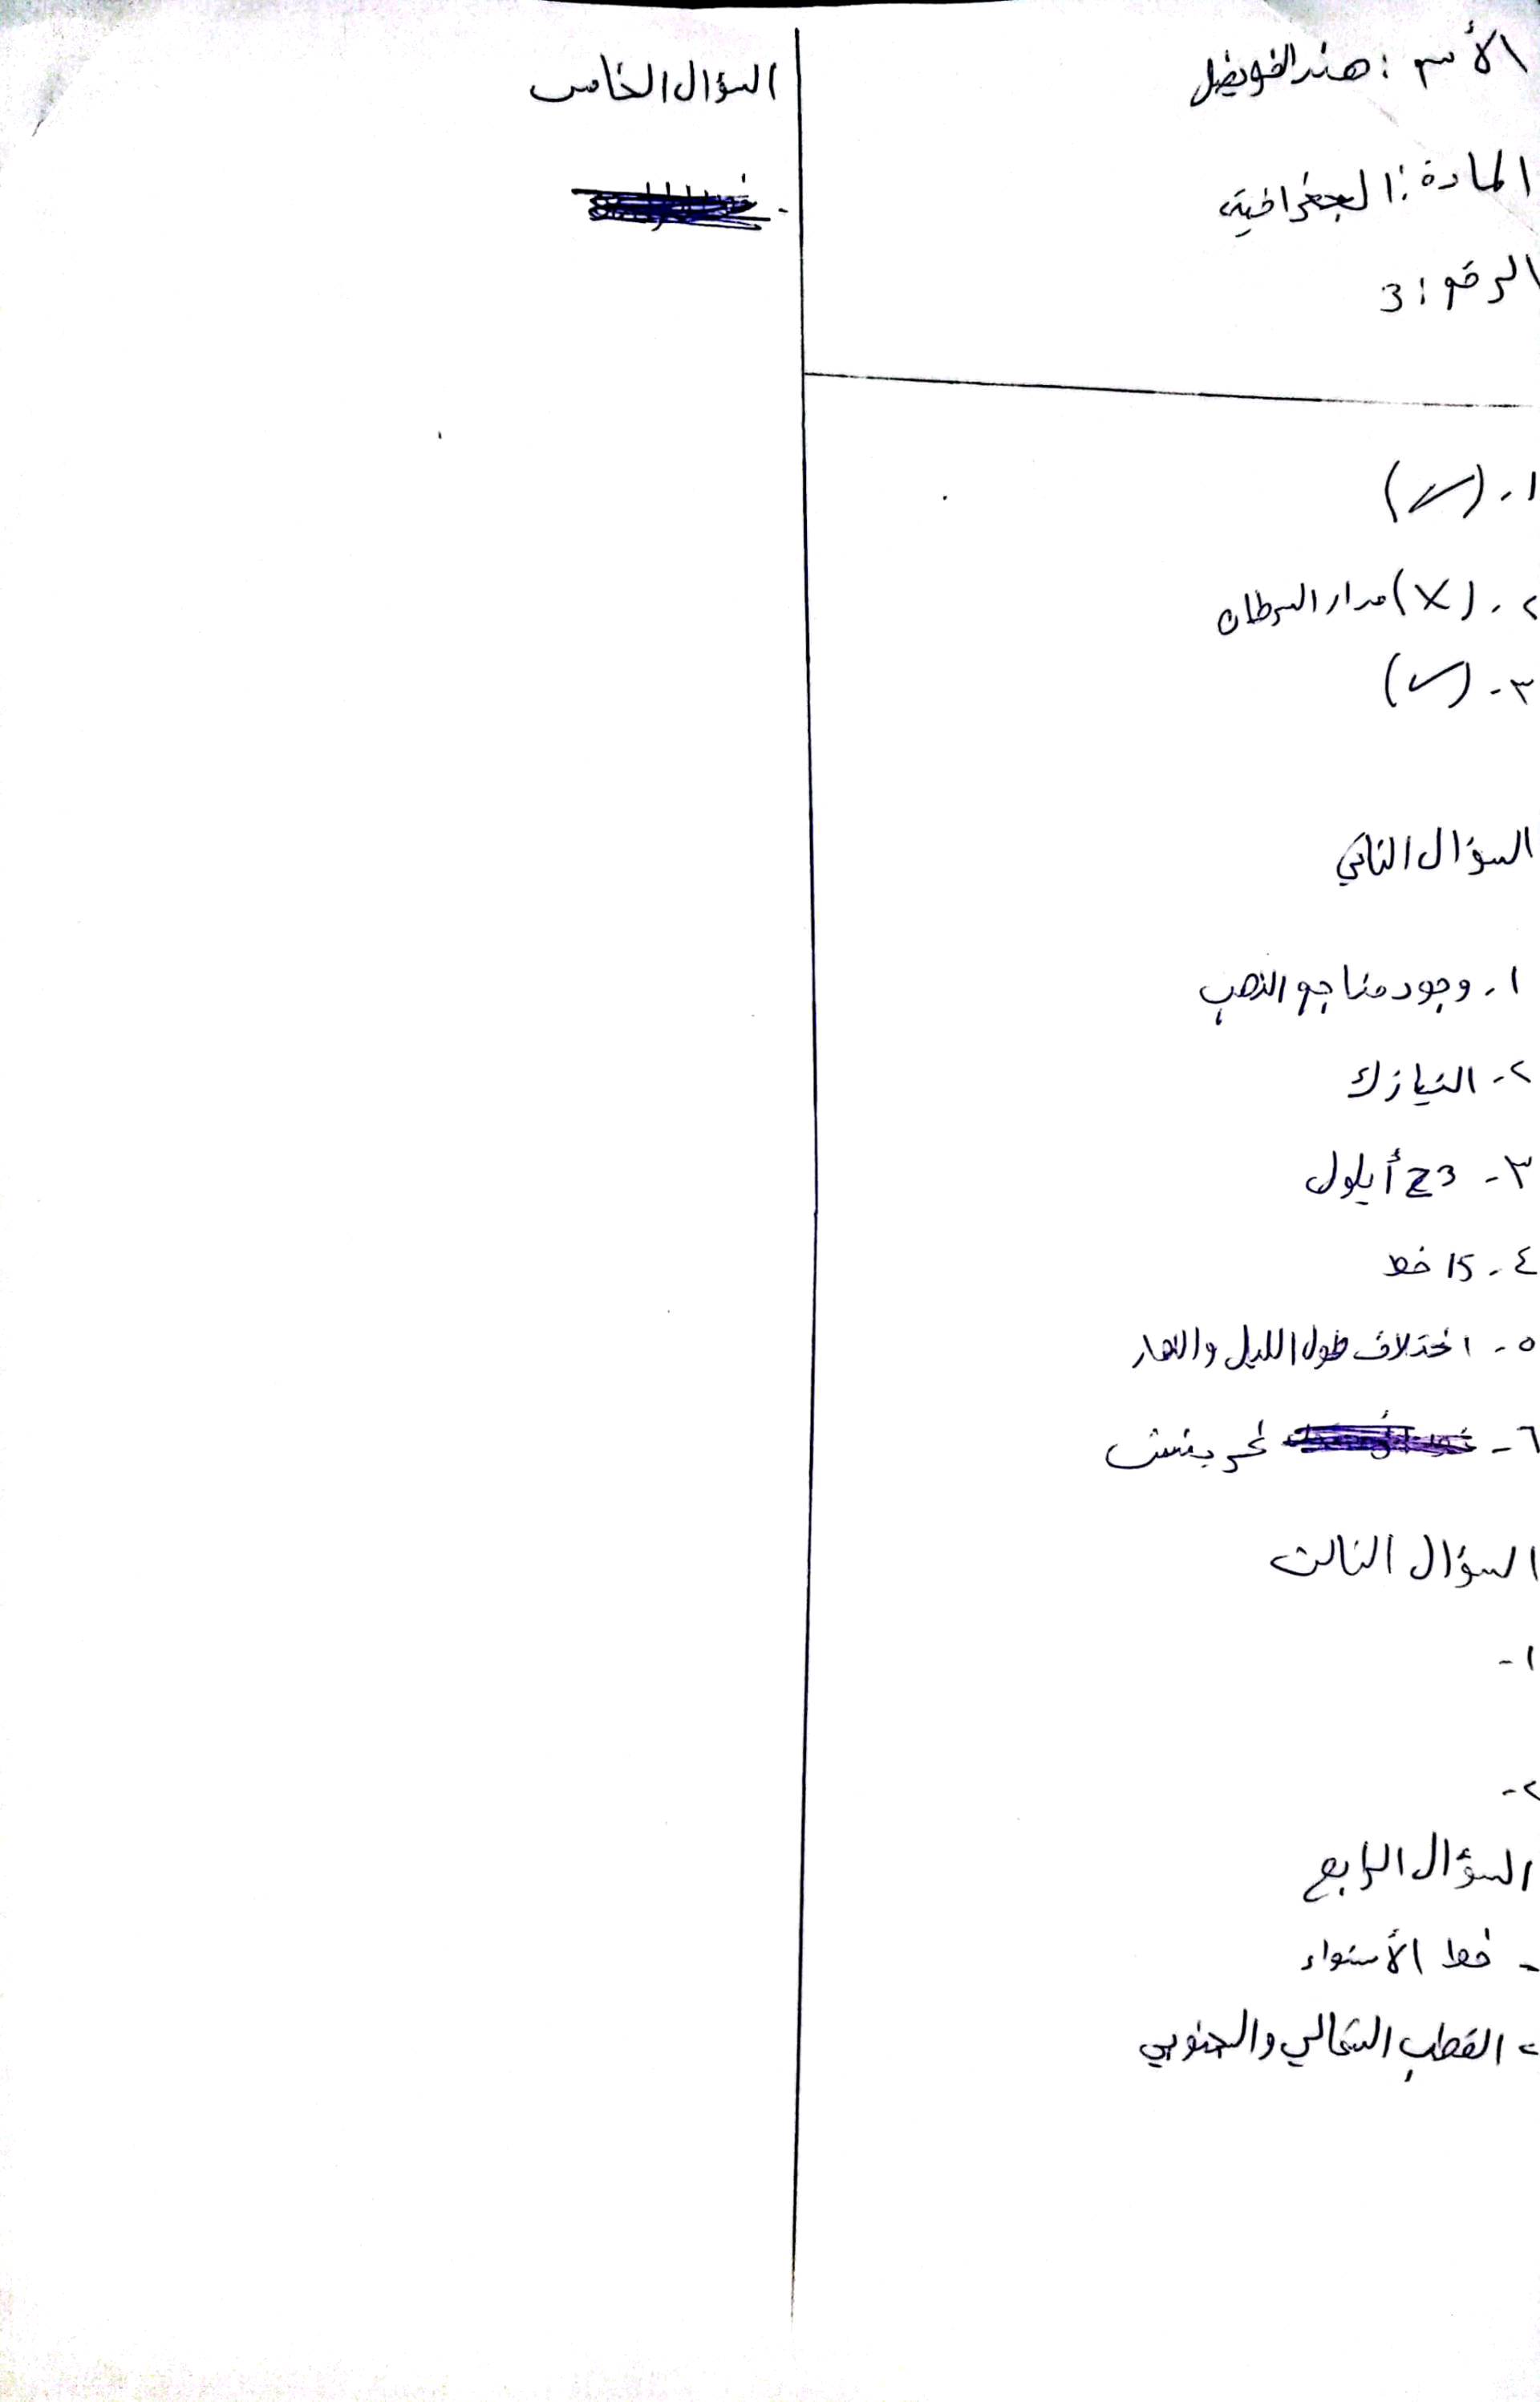 الأسم : هند الفويضل
المادة : الجغرافية
الرقم : 3
١- (✓)
٢- (X) مدار السرطان
٣- (✓)
السؤال الثاني
١- وجود مناجم الذهب
٢- النيازك
٣- 23 أيلول
٤- 15 خط
٥- اختلاف طول الليل والنهار
٦- غرينتش
السؤال الثالث
١-
٢-
السؤال الرابع
- خط الأستواء
- القطب الشمالي والجنوبي
السؤال الخامس
-